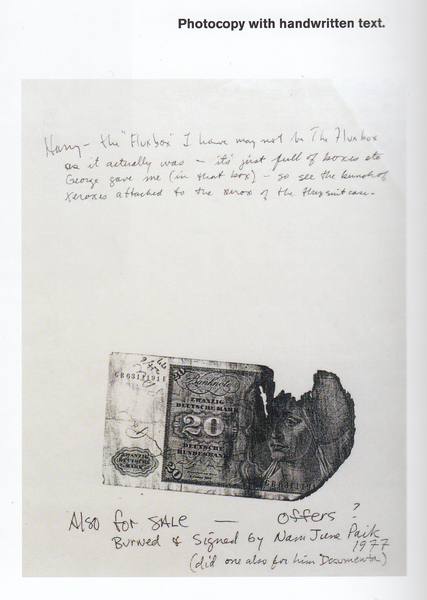 Photocopy with handwritten text.
Harry - the "Fluxbox" I have may not be The Fluxbox
as it actually was - it's just full of boxes etc
George gave me (in that box) - so see the bunch of
xeroxes attached to the xerox of the flux suitcase.
GB6311191E
20
Banknote
ZWANZIG
DEUTSCHE MARK
20
DEUTSCHE
BUNDESBANK
ZWANZIG
DEUTSCHE
MARK
20
GB63111
Also for SALE - offers?
Burned & Signed by Nam June Paik
1977
(did one also for him Documenta)